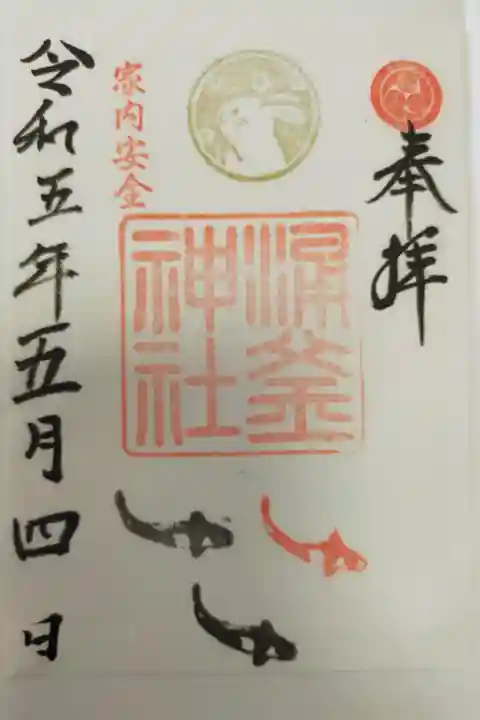 奉拝
涌釜
神社
家内安全
令和五年五月四日